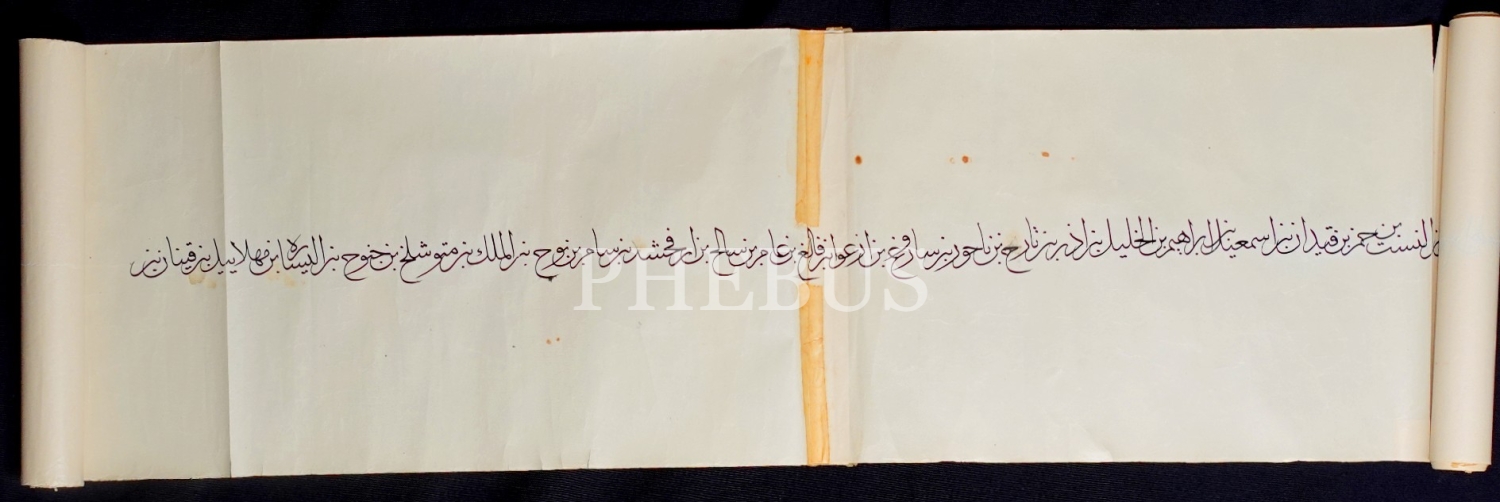 بن النبست بن حمز بن قيدان بن اسمعيل بن ابراهيم بن الخليل بن اذر بن تارخ بن ناحور بن ساروغ بن ارعوا بن فالغ بن غامر بن سالح بن ارفخشد بن سام بن نوح بن الملك بن متوشلخ بن خنوخ بن اليساره ابن مهلاييل بن قينان بن
PHEBUS